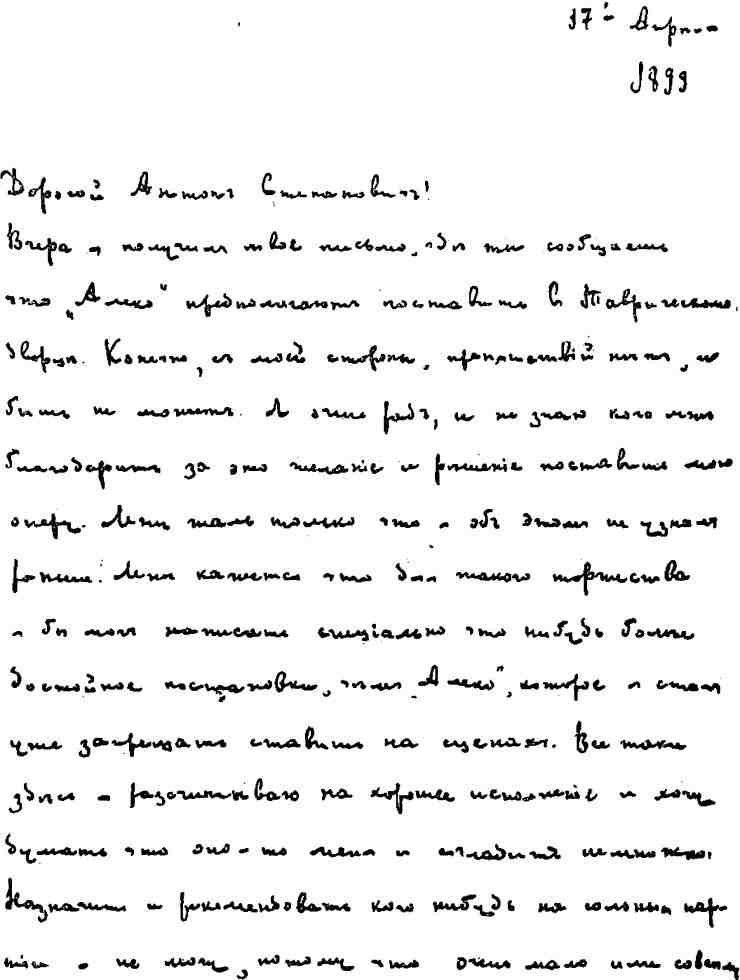 17го Апрѣля
1899
Дорогой Антонъ Степановичъ!
Вчера я получилъ твое письмо, гдѣ ты сообщаешь
что „Алеко“ предполагаютъ поставить въ Таврическомъ
дворцѣ. Конечно, съ моей стороны, препятствій нѣтъ, и
быть не можетъ. Я очень радъ, и не знаю кого мнѣ
благодарить за это желаніе и рѣшеніе поставить мою
оперу. Мнѣ жаль только что я объ этомъ не узналъ
раньше. Мнѣ кажется что для такого торжества
я бы могъ написать спеціально что нибудь болѣе
достойное постановки, чѣмъ „Алеко“, которое я сталъ
уже запрещать ставить на сценахъ. Все таки
здѣсь я разсчитываю на хорошее исполненіе и хочу
думать что оно-то меня и сгладитъ немножко.
Назначить и рекомендовать кого нибудь на сольныя пар-
тіи я не могу, потому что очень мало или совсѣмъ